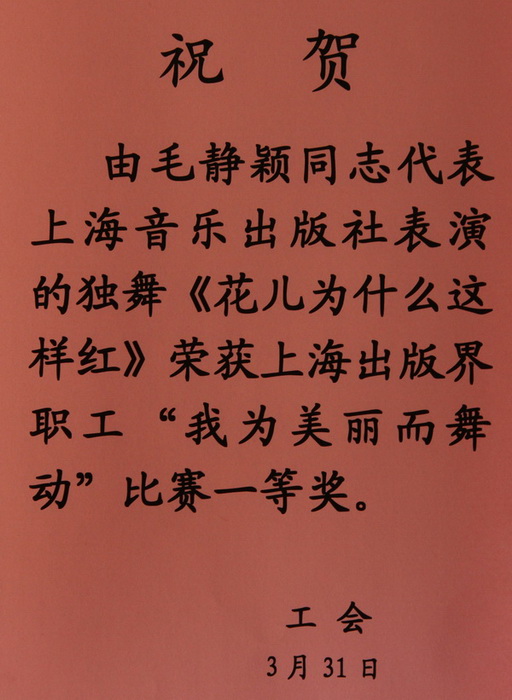 祝 贺
由毛静颖同志代表
上海音乐出版社表演
的独舞《花儿为什么这
样红》荣获上海出版界
职工“我为美丽而舞
动”比赛一等奖。
工 会
3月31日